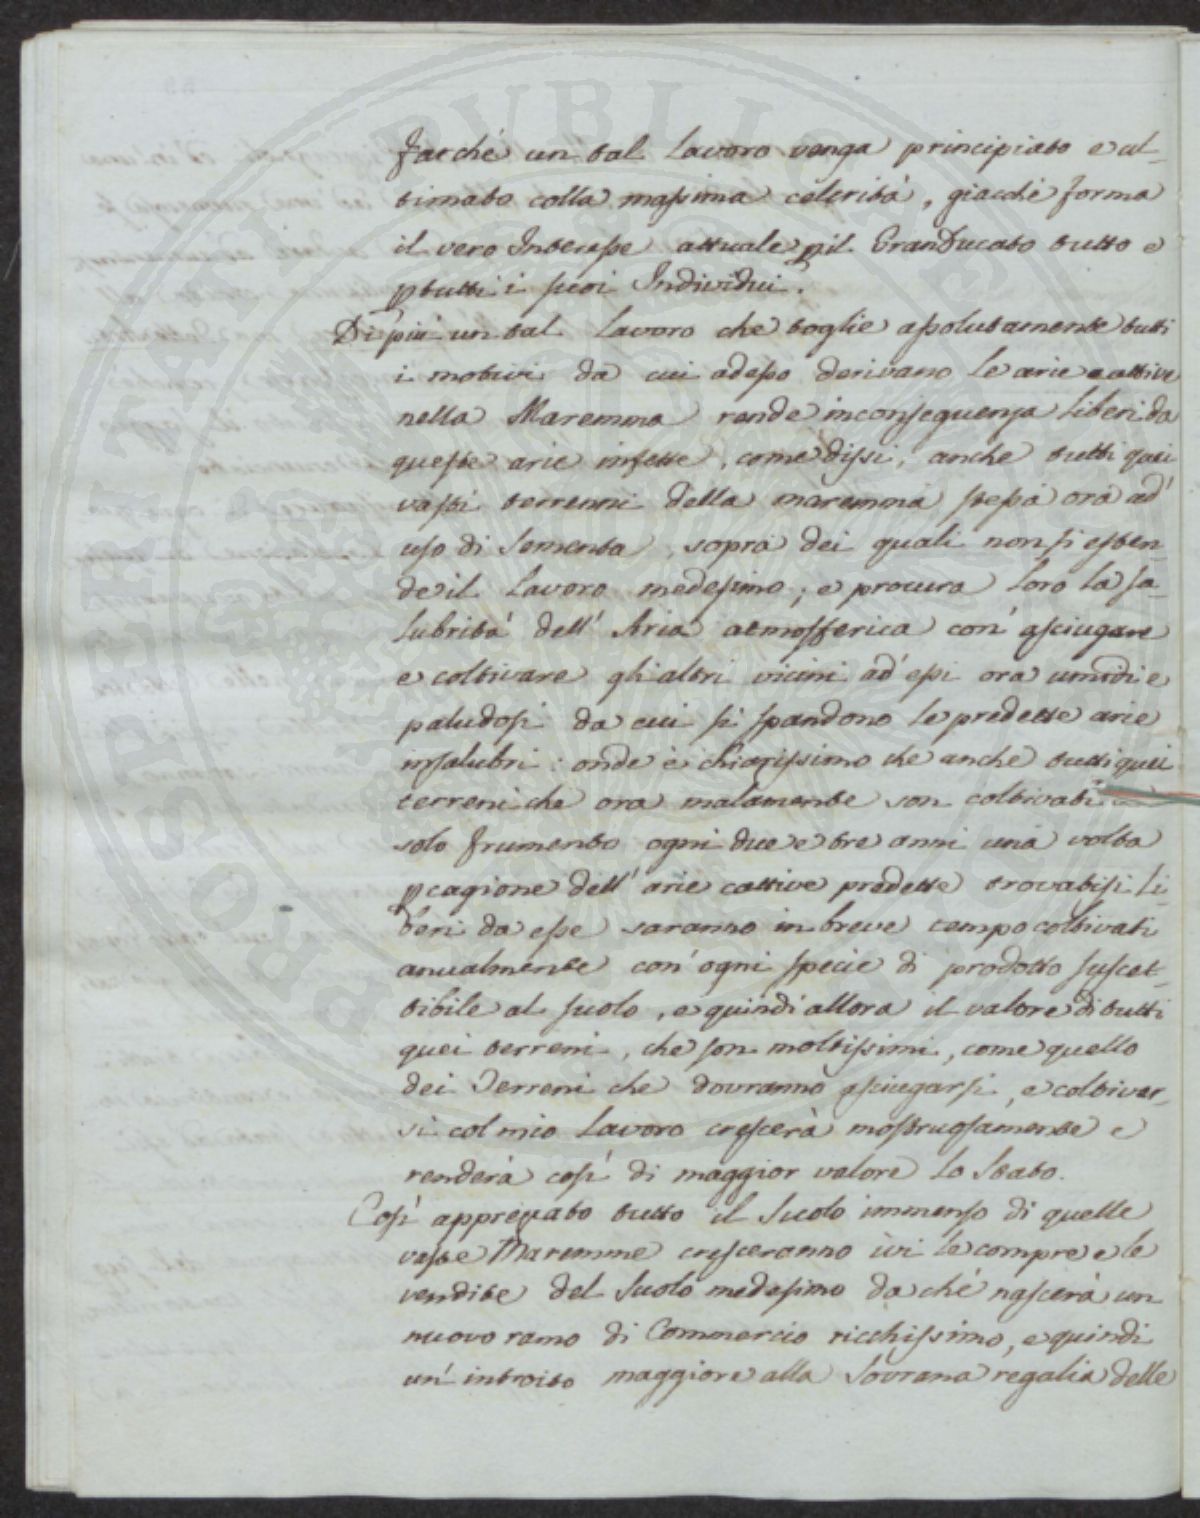 farchè un tal Lavoro venga principiato e ul-
timato colla massima celerità, giacchè forma
il vero Interesse attuale p il GranDucato tutto e
p tutti i suoi Individui.
Di più un tal Lavoro che toglie assolutamente tutti
i motivi da cui adesso derivano le arie cattive
nella Maremma rende inconseguenza liberi da
queste arie infette, come dissi, anche tutti quei
vasti terreni della maremma stessa ora ad'
uso di Sementa, sopra dei quali non si esten-
de il Lavoro medesimo; e procura loro la sa-
lubrità dell' Aria atmosferica con' asciugare
e coltivare gli altri vicini ad' essi ora umidi e
paludosi da cui si spandono le predette arie
insalubri: onde è chiarissimo che anche tutti quei
terreni che ora malamente son coltivati a
solo frumento ogni due e tre anni una volta
p cagione dell' arie cattive predette trovatisi li-
beri da esse saranno in breve tempo coltivati
anualmente con' ogni specie di prodotto suscet-
tibile al suolo, e quindi allora il valore di tutti
quei terreni, che son moltissimi, come quello
dei Terreni che dovranno asciugarsi, e coltivar-
si col mio Lavoro crescerà mostruosamente e
renderà così di maggior valore lo Stato.
Così apprezzato tutto il Suolo immenso di quelle
vaste Maremme cresceranno ivi le compre e le
vendite del Suolo medesimo da chè nascerà un
nuovo ramo di Commercio ricchissimo, e quindi
un' introito maggiore alla Sovrana regalia delle
PROSPERITATI PUBLICAE